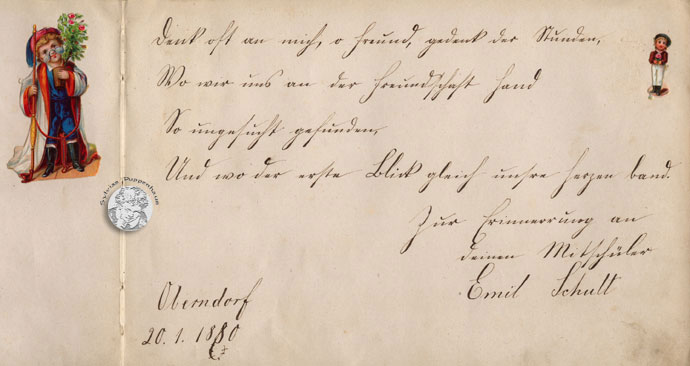 Denk oft an mich, o Freund, gedenk der Stunden,
Wo wir uns an der Freundschaft Hand
So ungesucht gefunden,
Und wo der erste Blick gleich unsre Herzen band.
Zur Erinnerung an
deinen Mitschüler
Emil Schult
Oberndorf
20. 1. 1880
Sylvias Puppenhaus